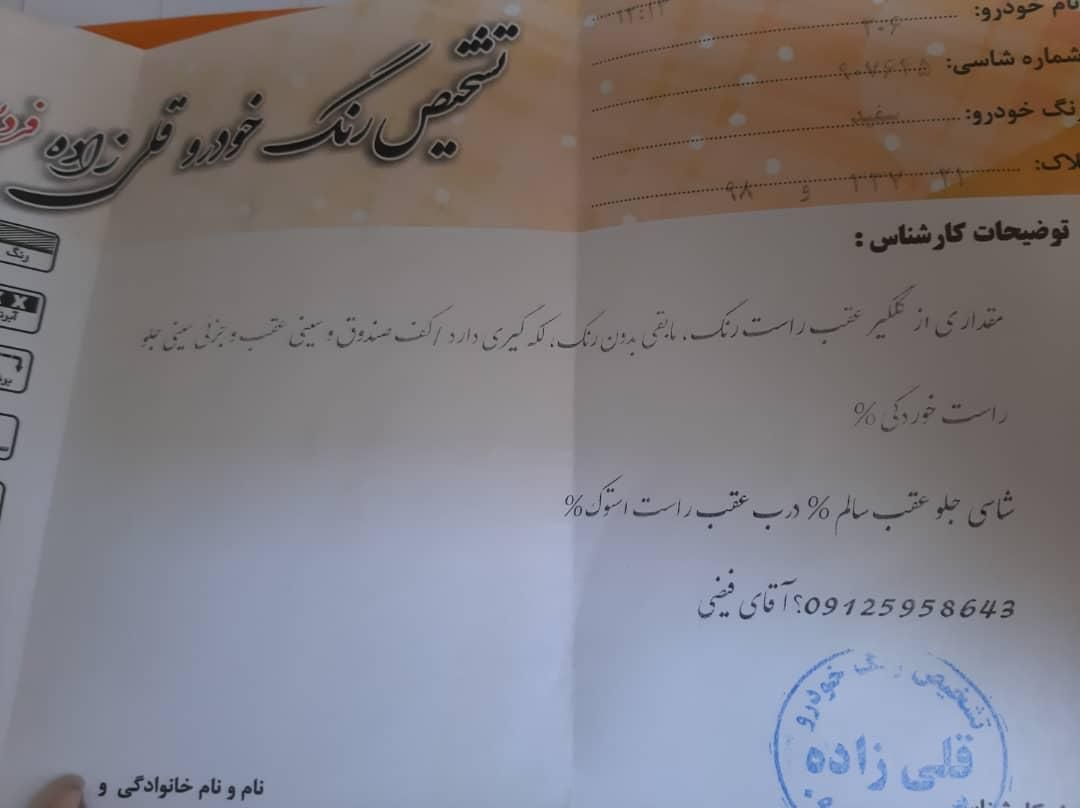 تشخیص رنگ خودرو قلی زاده
نام خودرو: ۲۰۶
۱۲:۱۳
شماره شاسی: ۹۰۷۶۴۵
رنگ خودرو: سفید
پلاک: ۲۱ ۱۳۲ و ۹۸
توضیحات کارشناس :
مقداری از گلگیر عقب راست رنگ، مابقی بدون رنگ، لکه گیری دارد / کف صندوق و سینی عقب و جزئی سینی جلو
راست خوردگی %
شاسی جلو عقب سالم % درب عقب راست استوک%
09125958643؟آقای فیضی
تشخیص رنگ خودرو
قلی زاده
نام و نام خانوادگی و
رنگ